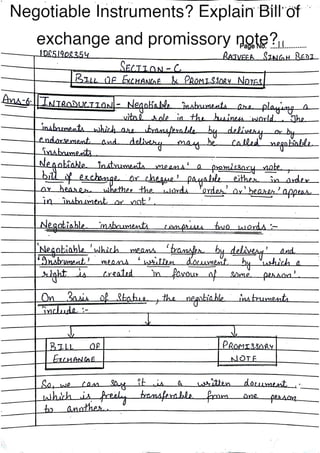 Negotiable Instruments? Explain Bill of
exchange and promissory note?
Page No. 11
IDE51908354 RAJVEER SINGH BEDI
SECTION - C
BILL OF EXCHANGE & PROMISSORY NOTES
Ans-6 INTRODUCTION :- Negotiable instruments are playing a
vital role in the business world. The
instruments which are transferable by delivery or by
endorsement and delivery may be called negotiable
instruments.
Negotiable Instruments means 'a promissory note,
bill of exchange or cheque' payable either in order
or bearer whether the words 'order' or 'bearer' appear
in instrument or not'.
Negotiable instruments comprises two words :-
'Negotiable' which means 'transfer by delivery' and
'Instrument' means 'written document by which a
right is created in favour of some person'.
On Basis of Statue, the negotiable instruments
include :-
BILL OF EXCHANGE
PROMISSORY NOTE
So, we can say it is a written document
which is freely transferable from one person
to another.